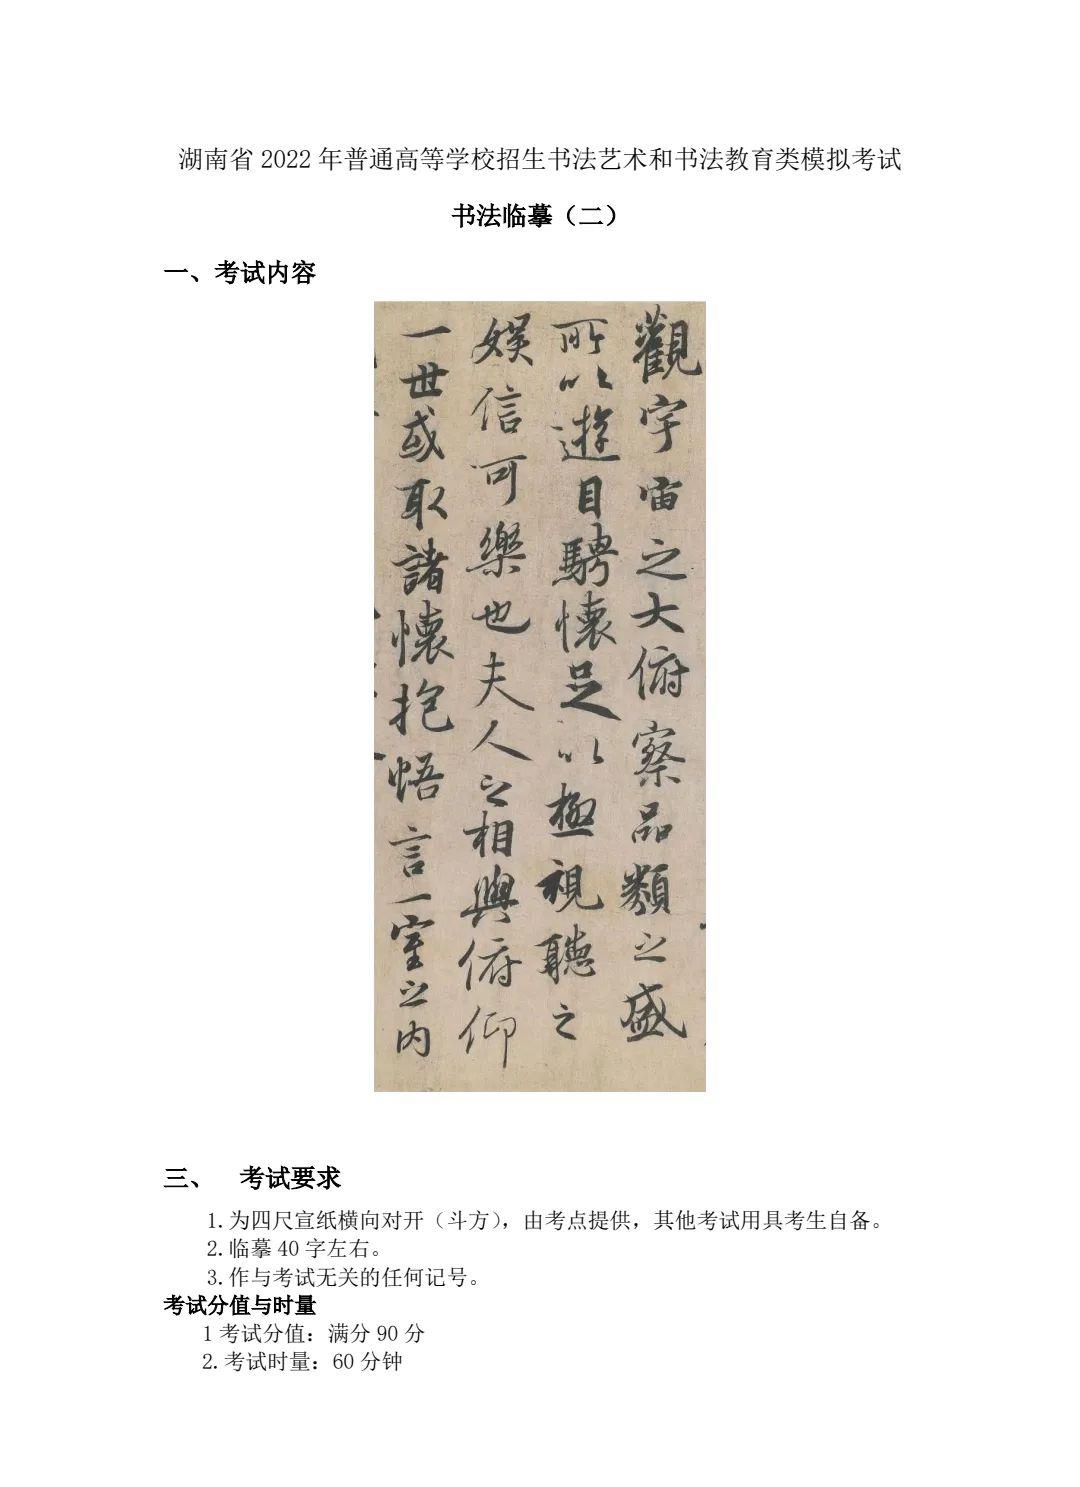 湖南省 2022 年普通高等学校招生书法艺术和书法教育类模拟考试
书法临摹（二）
一、考试内容
觀宇宙之大俯察品類之盛
所以遊目騁懷足以極視聽之
娛信可樂也夫人之相與俯仰
一世或取諸懷抱悟言一室之内
三、　考试要求
1.为四尺宣纸横向对开（斗方），由考点提供，其他考试用具考生自备。
2.临摹 40 字左右。
3.作与考试无关的任何记号。
考试分值与时量
1 考试分值：满分 90 分
2.考试时量：60 分钟